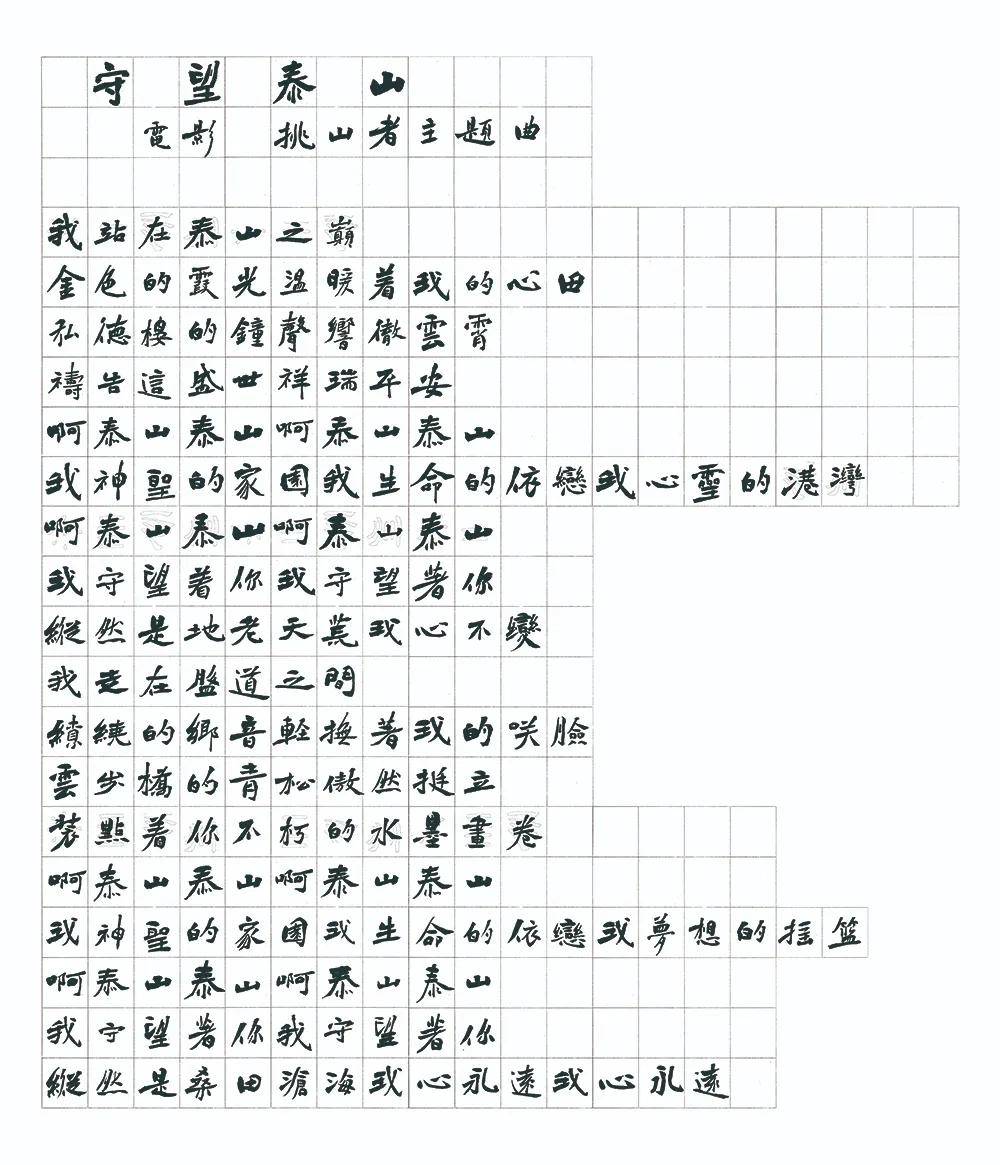 守望泰山
電影 挑山者主題曲
我站在泰山之巔
金色的霞光溫暖着我的心田
弘德樓的鐘聲響徹雲霄
禱告這盛世祥瑞平安
啊泰山泰山啊泰山泰山
我神聖的家園我生命的依戀我心靈的港灣
啊泰山泰山啊泰山泰山
我守望着你我守望著你
縱然是地老天荒我心不變
我走在盤道之間
繚繞的鄉音輕撫著我的咲臉
雲步橋的青松傲然挺立
裝點着你不朽的水墨畫卷
啊泰山泰山啊泰山泰山
我神聖的家園我生命的依戀我夢想的揺籃
啊泰山泰山啊泰山泰山
我守望著你我守望著你
縱然是桑田滄海我心永遠我心永遠